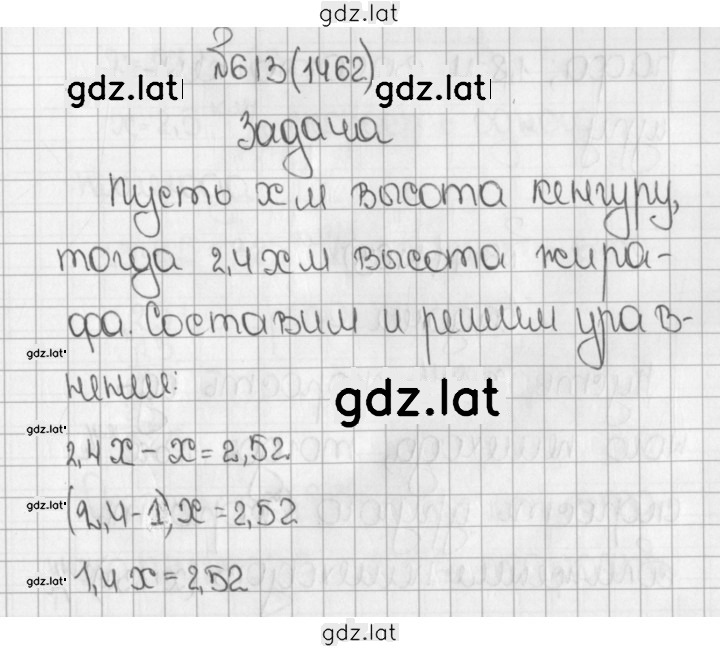 gdz.lat
№613(1462)
gdz.lat gdz.lat
Задача
Пусть x м высота кенгуру,
тогда 2,4x м высота жира-
фа. Составим и решим урав-
gdz.lat
нение:
gdz.lat
gdz.lat
2,4x - x = 2,52
gdz.lat
(2,4-1)x = 2,52
gdz.lat
1,4x = 2,52
gdz.lat